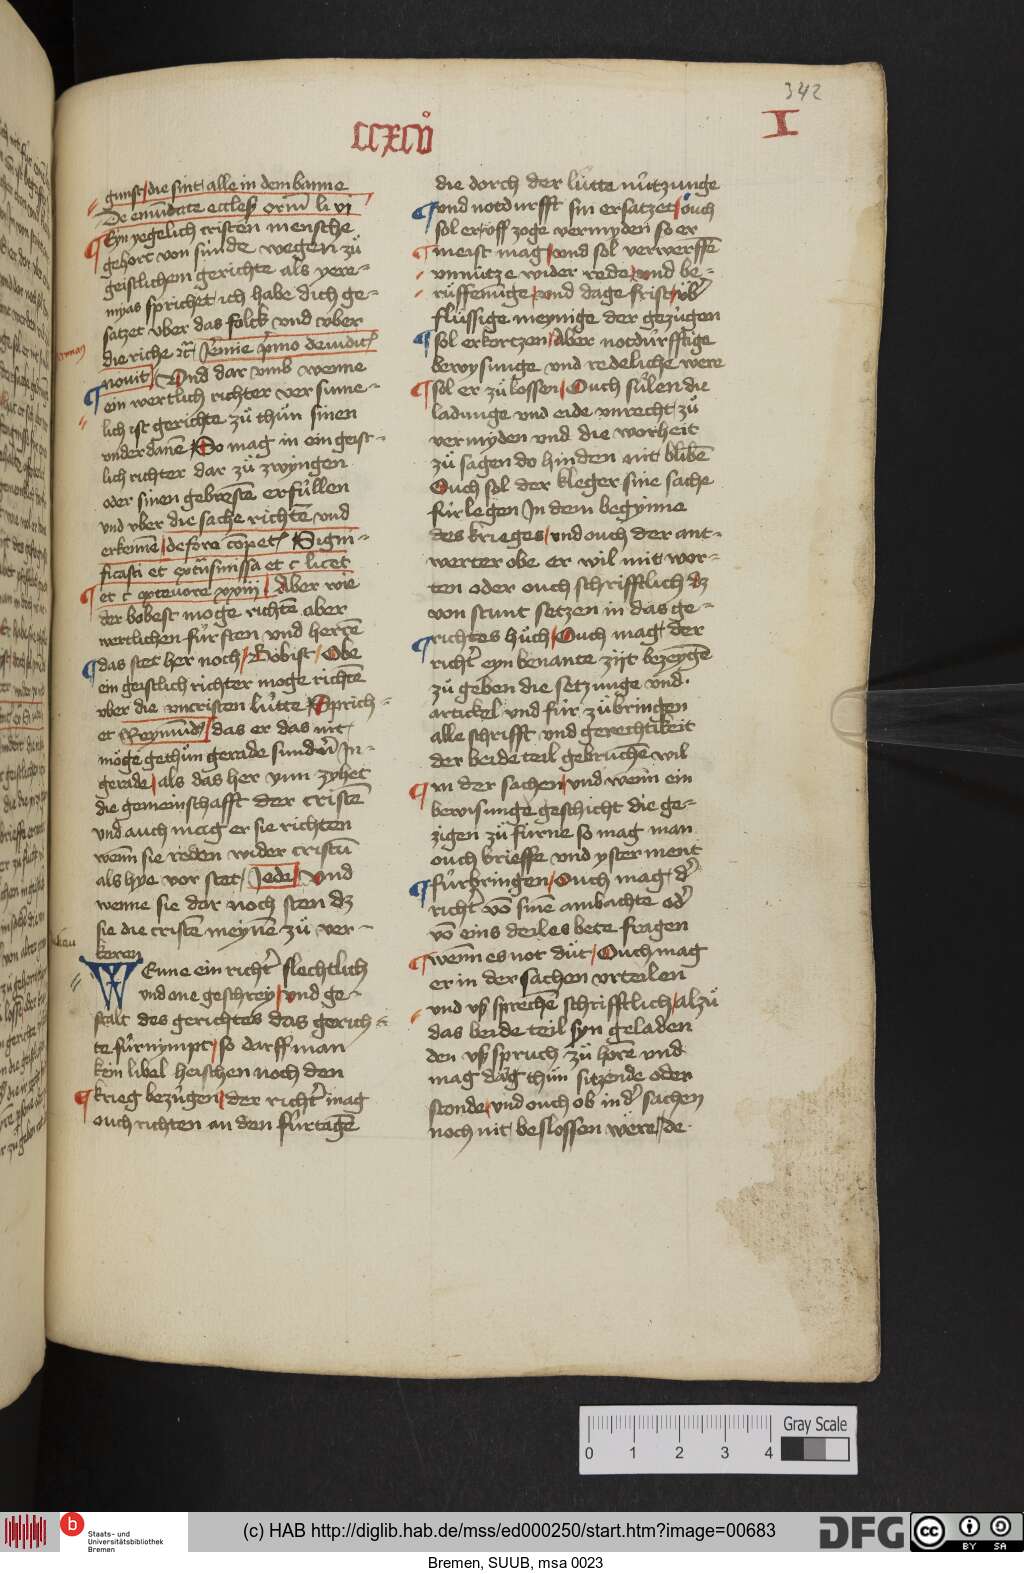 342
CCXCV
I
gunst / die sint alle in dem banne
De emūdate eccles orim li vi
Eyn yegelich cristen mensche
gehort von sunde wegen zů
geistlichem gerichte als yere-
myas sprichet ich habe dich ge-
satzet vber das folck vnd vber
die riche
novit Vnd dar vmb wenne
ein wertlich richter versume-
lich ist gerichte zů thůn sinen
vnderdanē So mag in ein geist-
lich richter dar zů zwyngen
oder sinen gebrestē erfüllen
vnd vber die sache richtē vnd
erkennē / de foro cōpet Signi-
ficasti et c licet
et c Aber wie
der bobest moge richtē aber
wertlichen fürsten vnd herrē
das stet her noch / Bobist / Obe
ein geistlich richter moge richtē
vber die vncristen lütte Sprich-
et Reymūd / das er das nit
möge gethůn gerade sunder In-
gerade / als das her ynn zyhet
die gemeinschafft der cristē
vnd auch mag er sie richten
wenn sie reden wider cristū
als hye vor stet / Jede / Vnd
wenne sie dar noch sten dz
sie die cristē meynē zů ver-
keren
WEnne ein richtr slechtlich
vnd one geschrey / vnd ge-
stalt des gerichtes das gerich-
te fürnympt / so darff man
kein libel heischen noch den
krieg bezügen / der richtr mag
ouch richten an den fürtagē
die dorch der lütte nützunge
vnd notdurfft sin ersatzet / ouch
sol er vff zoge vermyden so er
meist mag / vnd sol verwerffē
vnnütze wider rede / vnd be-
rüffenüge / vnd dage frist / vbr
flüssige meynige der gezügen
sol er kortzen / Aber notdürfftige
bewysunge vnd redeliche were
sol er zů lossen / Ouch sülen du
ladunge vnd eide vnrecht zů
vermyden vnd die worheit
zů sagen do hinden nit blibē
Ouch sol der kleger sine sache
fürlegen In dem begynne
des krieges / vnd ouch der ant-
werter obe er wil mit wor-
ten oder ouch schrifftlich dz
von stunt setzen in das ge-
richtes hůch / Ouch mag der
richtr eyn benante zijt bezeygē
zů geben die setzunge vnd
artickel vnd für zů bringen
alle schrifft vnd gerechtikeit
der beide teil gebruchē wil
in der sachen / vnd wenn ein
bewisunge geschicht die ge-
zigen zů fürne so mag man
ouch brieffe vnd ysterment
fürbringen / Ouch mag dr
richtr vō sinē ambachte odr
vō eins deiles bete fragen
wenn es not düt / Ouch mag
er in der sachen vrteilen
vnd vß sprechē schrifftlich / alzů
das beide teil syn geladen
den vß spruch zů hörē vnd
mag dag thůn sitzende oder
stonde / vnd ouch ob in dr sachen
noch nit beslossen were / de
0 1 2 3 4
Gray Scale
b
Staats- und
Universitätsbibliothek
Bremen
(c) HAB http://diglib.hab.de/mss/ed000250/start.htm?image=00683
DFG
cc
BY SA
Bremen, SUUB, msa 0023